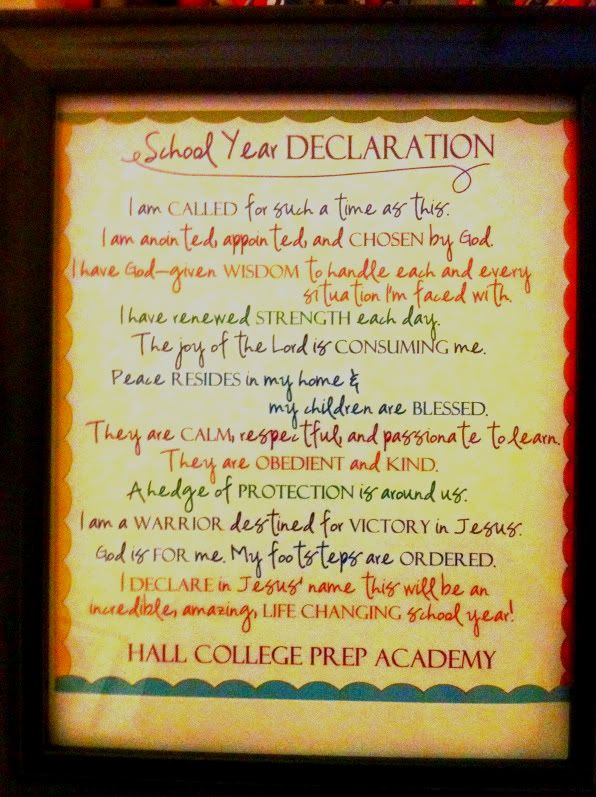 School Year DECLARATION
I am CALLED for such a time as this.
I am anointed, appointed, and CHOSEN by God.
I have God-given WISDOM to handle each and every
situation I'm faced with.
I have renewed STRENGTH each day.
The joy of the Lord is CONSUMING me.
Peace RESIDES in my home &
my children are BLESSED.
They are CALM, respectful, and passionate to learn.
They are OBEDIENT and KIND.
A hedge of PROTECTION is around us.
I am a WARRIOR destined for VICTORY in Jesus.
God is FOR me. My footsteps are ORDERED.
I DECLARE in Jesus' name this will be an
incredible, amazing, LIFE CHANGING school year!
HALL COLLEGE PREP ACADEMY